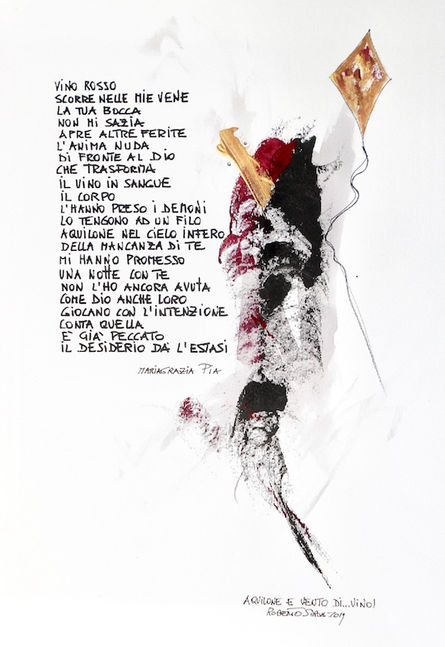 VINO ROSSO
SCORRE NELLE MIE VENE
LA TUA BOCCA
NON MI SAZIA
APRE ALTRE FERITE
L'ANIMA NUDA
DI FRONTE AL DIO
CHE TRASFORMA
IL VINO IN SANGUE
IL CORPO
L'HANNO PRESO I DEMONI
LO TENGONO AD UN FILO
AQUILONE NEL CIELO INFERO
DELLA MANCANZA DI TE
MI HANNO PROMESSO
UNA NOTTE CON TE
NON L'HO ANCORA AVUTA
COME DIO ANCHE LORO
GIOCANO CON L'INTENZIONE
CONTA QUELLA
E' GIA' PECCATO
IL DESIDERIO DA' L'ESTASI
MARIAGRAZIA PIA
AQUILONE E VENTO DI...VINO!
ROBERTO